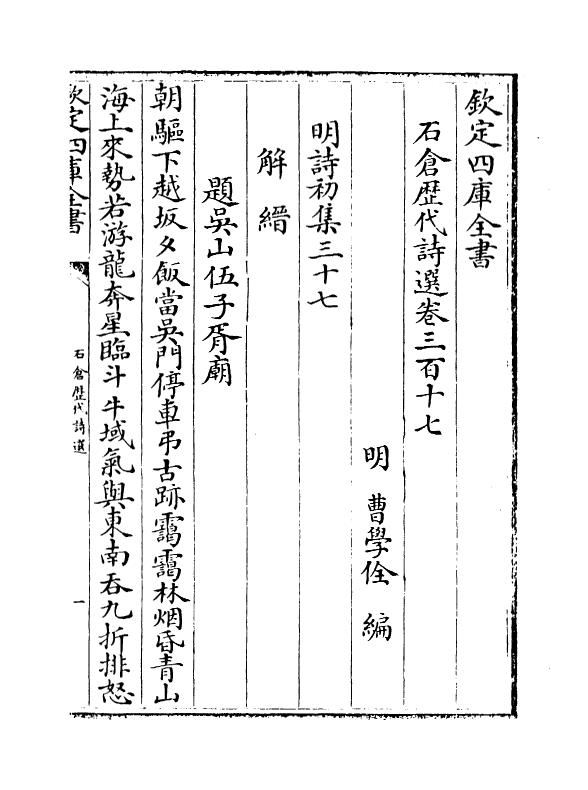 欽定四庫全書
石倉歴代詩選卷三百十七
明 曹學佺 編
明詩初集三十七
解縉
題吳山伍子胥廟
朝驅下越坂夕飯當吳門停車弔古跡靄靄林烟昏青山
海上來勢若游龍奔星臨斗牛域氣與東南吞九折排怒
欽定四庫全書
石倉歴代詩選
一